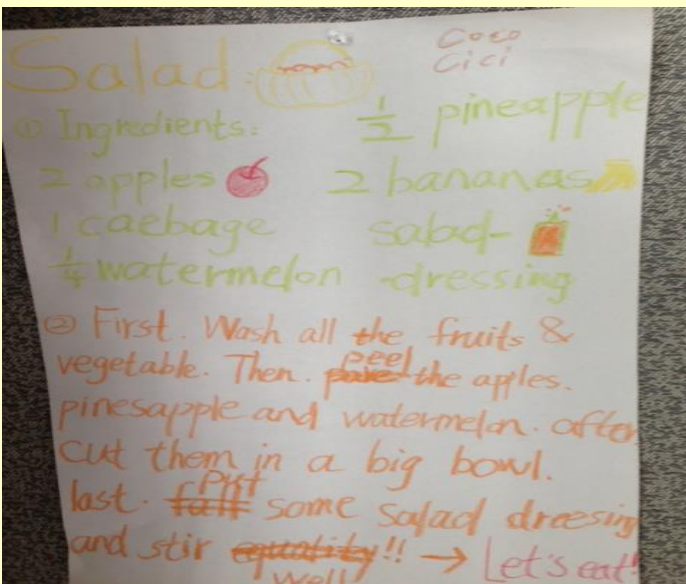 Salad:
Coco
Cici
① Ingredients:
1/2 pineapple
2 apples
2 bananas
1 caebage
salad-
1/4 watermelon
-dressing
② First. Wash all the fruits &
vegetable. Then. pare peel the apples.
pinesapple and watermelon. after
cut them in a big bowl.
last. put some salad dreesing
and stir equality well!! → Let's eat!